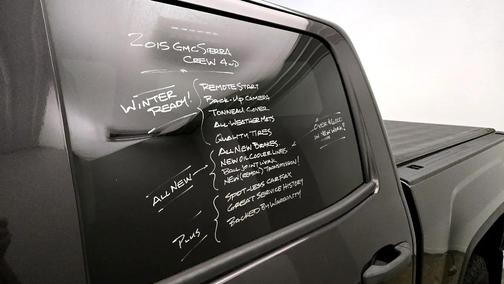 2015 GMC SIERRA
CREW 4WD
WINTER
READY!
REMOTE START
BACK-UP CAMERA
TONNEAU COVER
ALL-WEATHER MATS
QUALITY TIRES
ALL NEW
ALL NEW BRAKES
NEW OIL COOLER LINES
BALL JOINT WORK
NEW (REMAN) TRANSMISSION!
PLUS
SPOT-LESS CARFAX
GREAT SERVICE HISTORY
BACKED BY WARRANTY
OVER
IN
WORK!